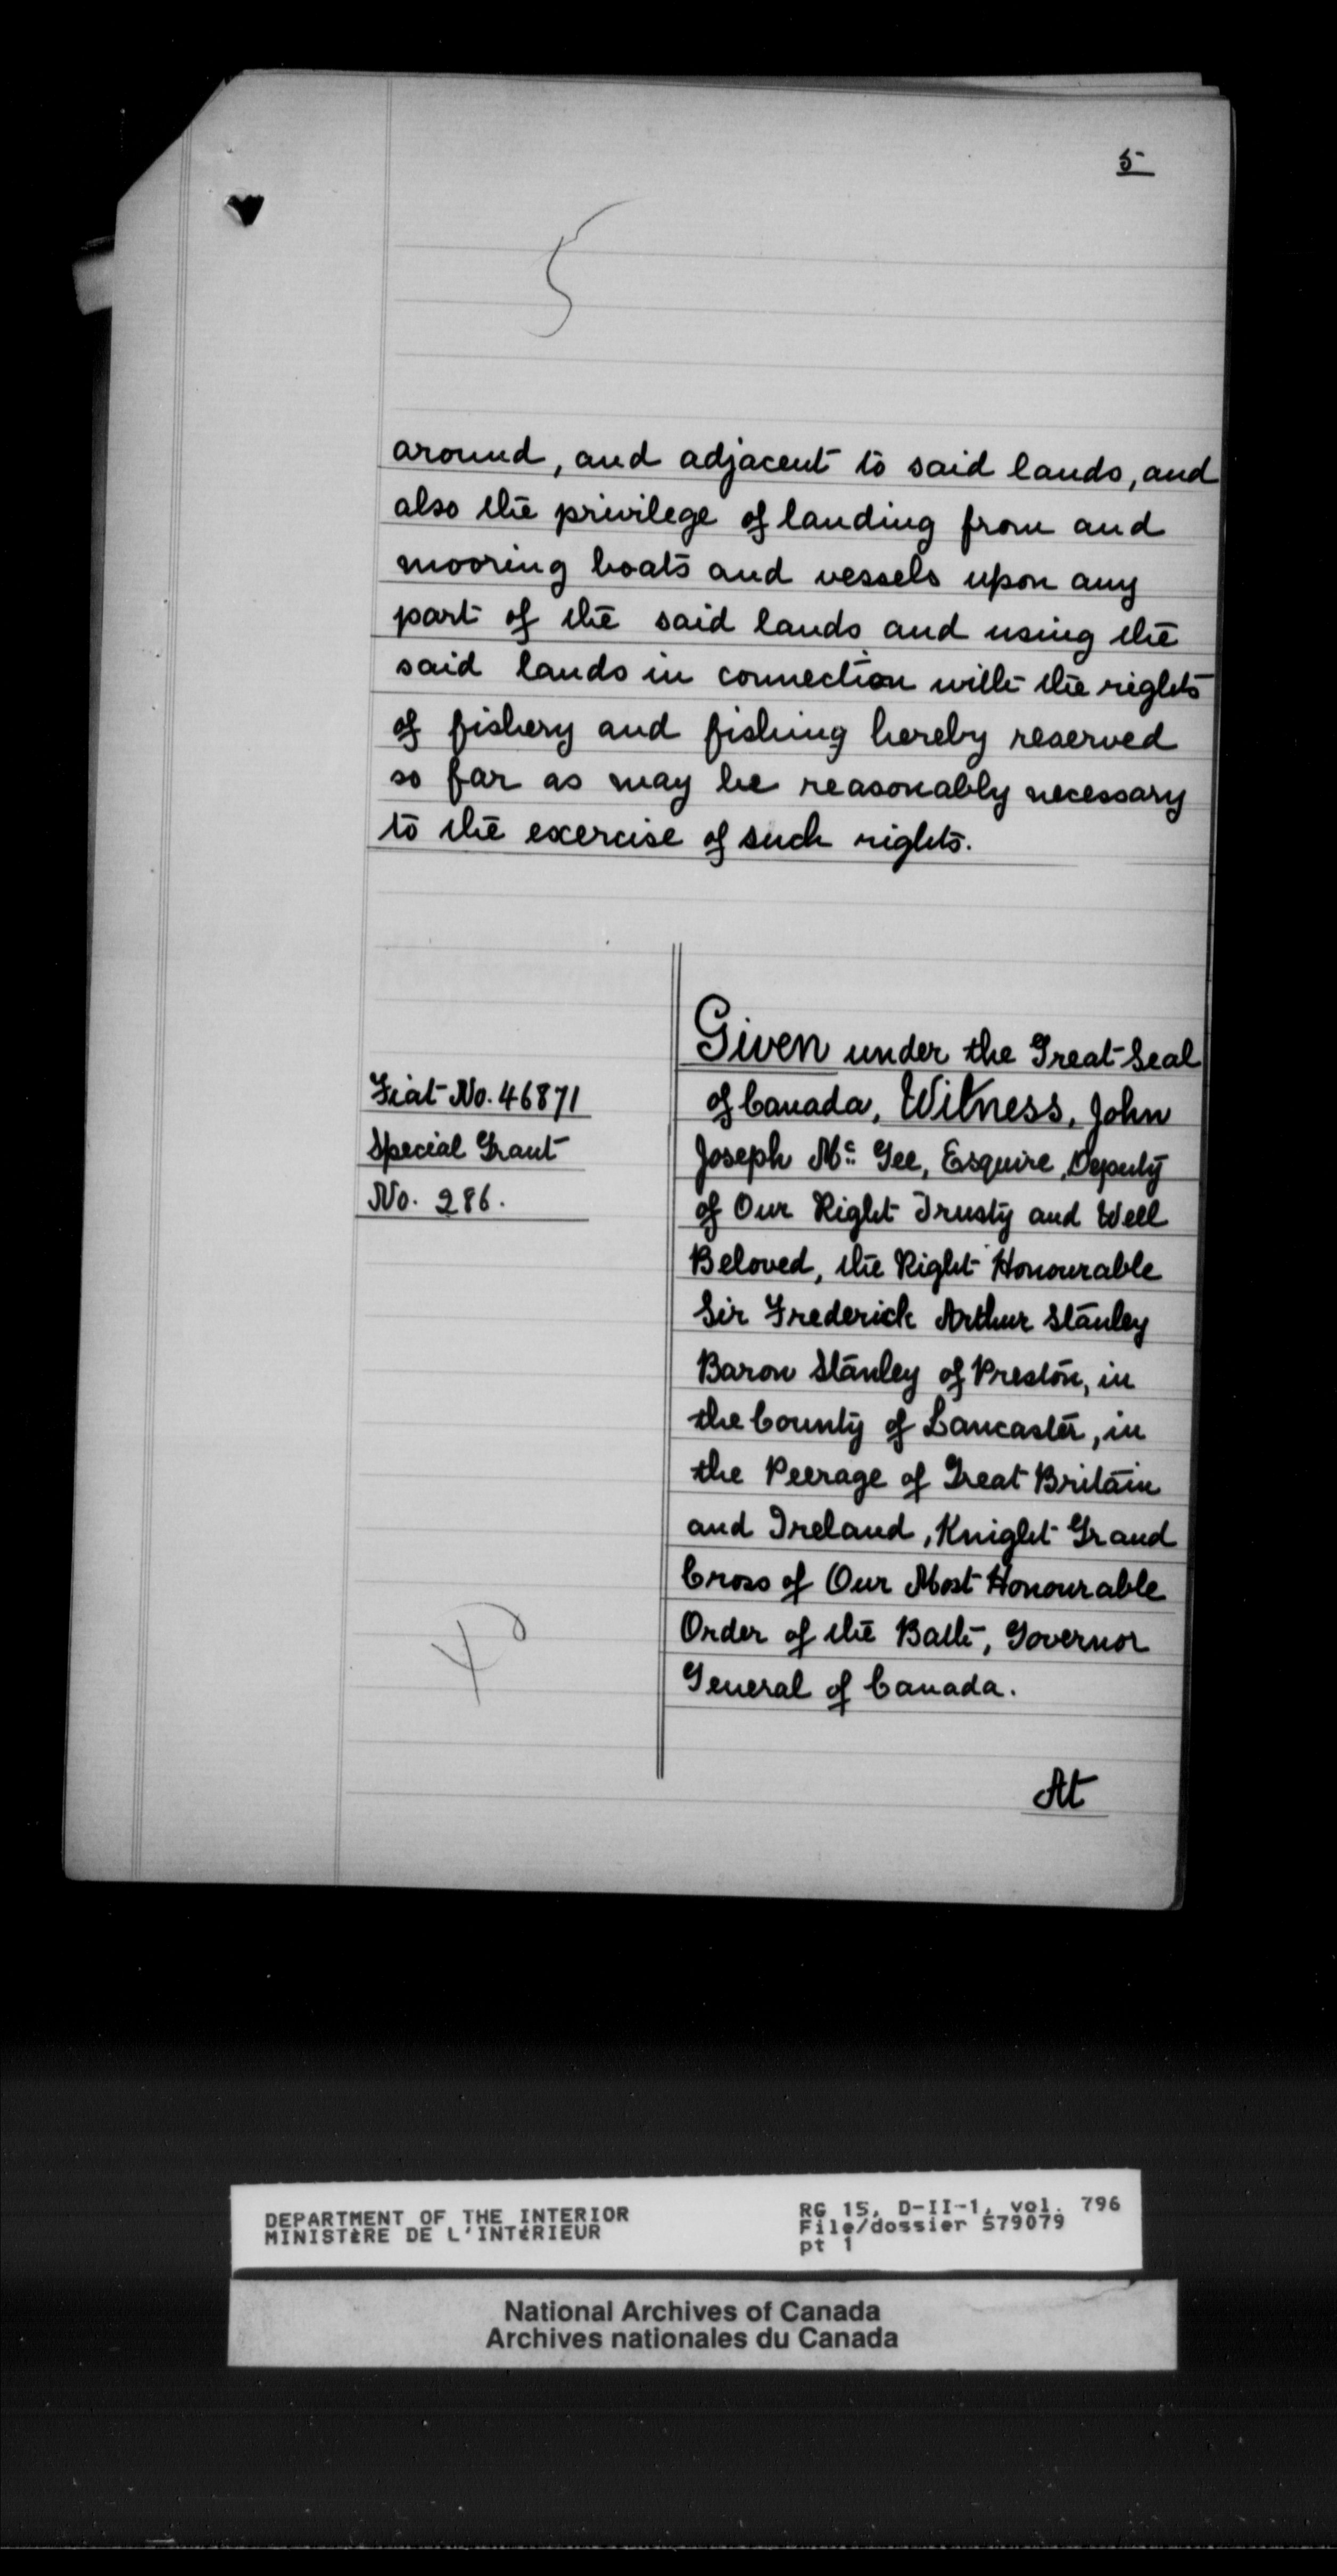 5
5
around, and adjacent to said lands, and
also the privilege of landing from and
mooring boats and vessels upon any
part of the said lands and using the
said lands in connection with the rights
of fishery and fishing hereby reserved
so far as may be reasonably necessary
to the exercise of such rights.
Fiat No. 46871
Special Grant
No. 286.
Given under the Great Seal
of Canada, Witness, John
Joseph Mc Gee, Esquire, Deputy
of Our Right Trusty and Well
Beloved, the Right Honourable
Sir Frederick Arthur Stanley
Baron Stanley of Preston, in
the County of Lancaster, in
the Peerage of Great Britain
and Ireland, Knight Grand
Cross of Our Most Honourable
Order of the Bath, Governor
General of Canada.
At
DEPARTMENT OF THE INTERIOR
MINISTÈRE DE L'INTÉRIEUR
RG 15, D-II-1, vol. 796
File/dossier 579079
pt 1
National Archives of Canada
Archives nationales du Canada